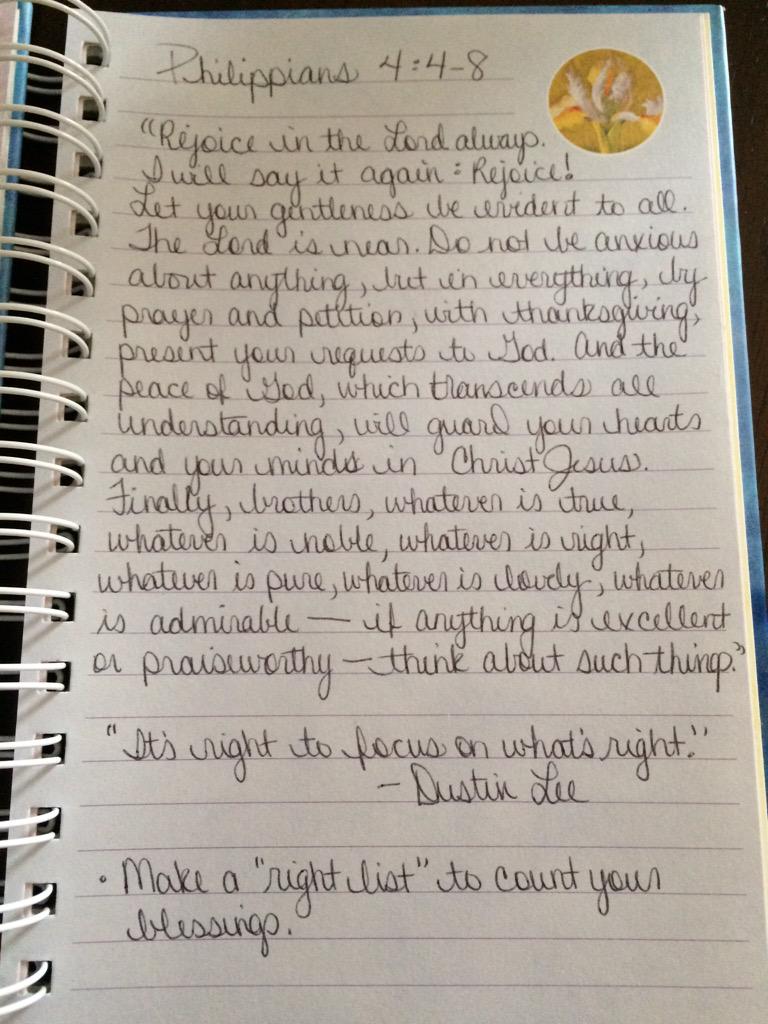 Philippians 4:4-8
"Rejoice in the Lord always.
I will say it again: Rejoice!
Let your gentleness be evident to all.
The Lord is near. Do not be anxious
about anything, but in everything, by
prayer and petition, with thanksgiving,
present your requests to God. And the
peace of God, which transcends all
understanding, will guard your hearts
and your minds in Christ Jesus.
Finally, brothers, whatever is true,
whatever is noble, whatever is right,
whatever is pure, whatever is lovely, whatever
is admirable — if anything is excellent
or praiseworthy — think about such things."
"It's right to focus on what's right."
- Dustin Lee
• Make a "right list" to count your
blessings.